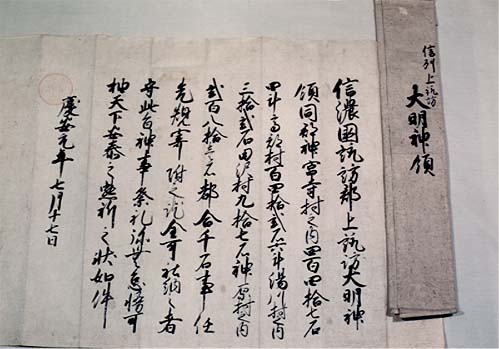 信州上諏訪
大明神領
信濃國諏訪郡上諏訪大明神
領同郡神宮寺村之内四百四拾七石
四斗高部村百四拾弐石六斗湯川村之内
三拾弐石田沢村九拾七石神原村之内
弐百八拾壱石都合千石事任
先規寄附之訖全可社納之者
守此旨神事祭礼弥無怠慢可
抽天下安泰之懇祈之状如件
慶安元年七月十七日